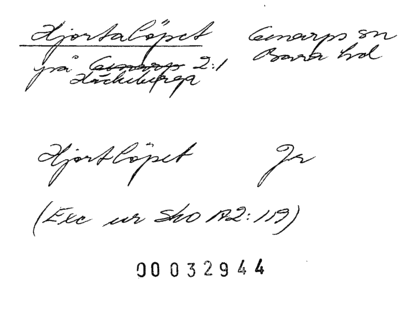 Hjortalöpet Genarps sn
på Genarps 2:1 Bara hd
Häckeberga
Hjortlöpet Jr
(Exc ur Sko A2:119)
00032944